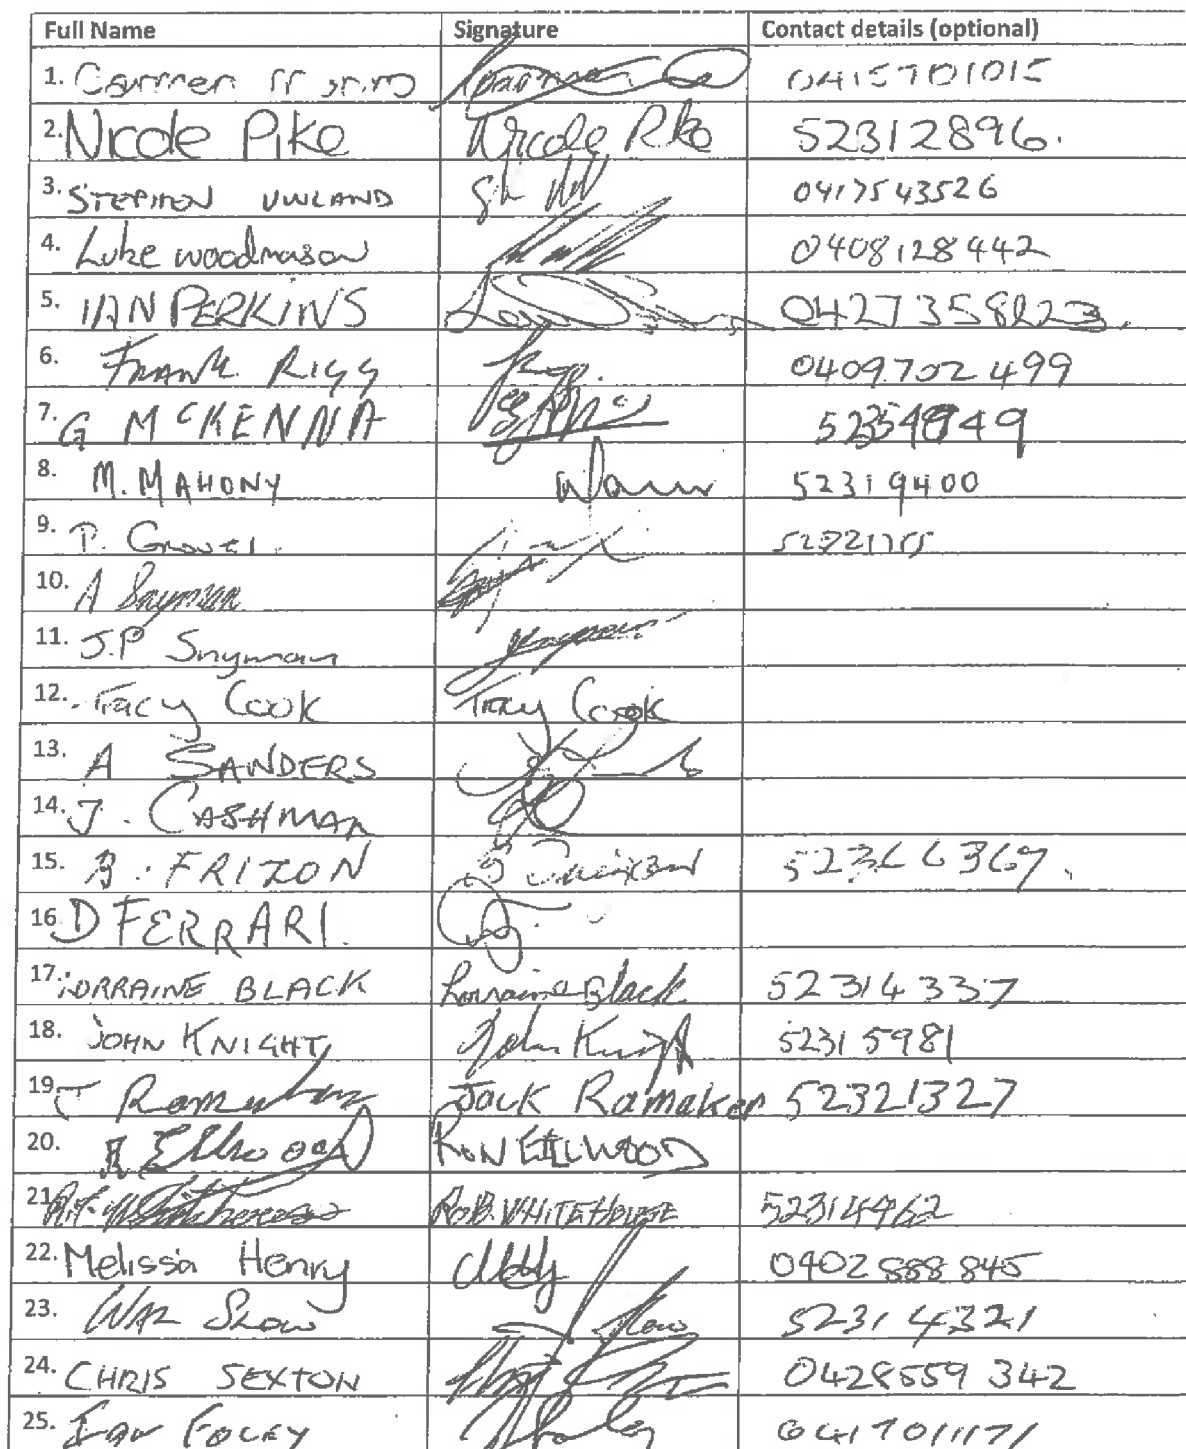 Full Name Signature Contact details (optional)
1. Carmen 0415701015
2. Nicole Pike Nicole Pike 52312896.
3. STEPHEN UWLAND 0417543526
4. Luke woodmason 0408128442
5. IAN PERKINS 0427358223.
6. FRANK RIGG Rigg. 0409702499
7. G MCKENNA
8. M. MAHONY 52319400
9. P.
10. A Snyman
11. J.P Snyman Snyman
12. Tracy Cook Tracy Cook
13. A SANDERS
14. J. CASHMAN
15. B. FRIZON 52366367.
16. D FERRARI.
17. LORRAINE BLACK Lorraine Black 52314337
18. JOHN KNIGHT John Knight 52315981
19. J Ramaker Jack Ramaker 52321327
20. R Ellwood RON ELLWOOD
21. R.F. Whitehouse ROB. WHITEHOUSE 52314962
22. Melissa Henry 0402 888 845
23. Snow 52314321
24. CHRIS SEXTON 0428559 342
25. IAN FOLEY 0417011171